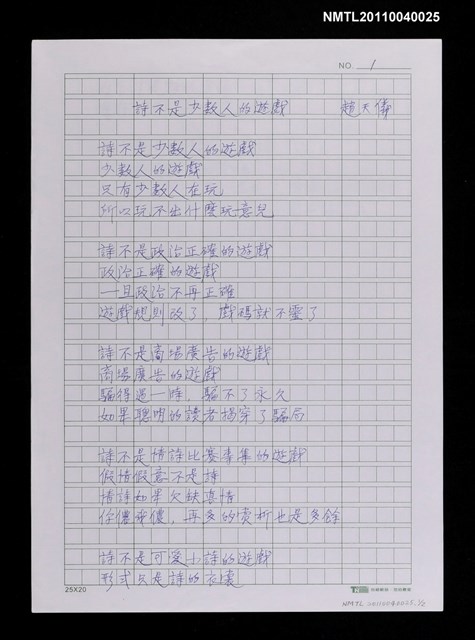 NMTL20110040025
NO. 1
詩不是少數人的遊戲 趙天儀
詩不是少數人的遊戲
少數人的遊戲
只有少數人在玩
所以玩不出什麼玩意兒
詩不是政治正確的遊戲
政治正確的遊戲
一旦政治不再正確
遊戲規則改了，戲碼就不靈了
詩不是商場廣告的遊戲
商場廣告的遊戲
騙得過一時，騙不了永久
如果聰明的讀者揭穿了騙局
詩不是情詩比賽專集的遊戲
假情假意不是詩
情詩如果欠缺真情
你儂我儂，再多的賞析也是多餘
詩不是可愛小詩的遊戲
形式只是詩的衣裳
25X20
NMTL 20110040025, 1/2